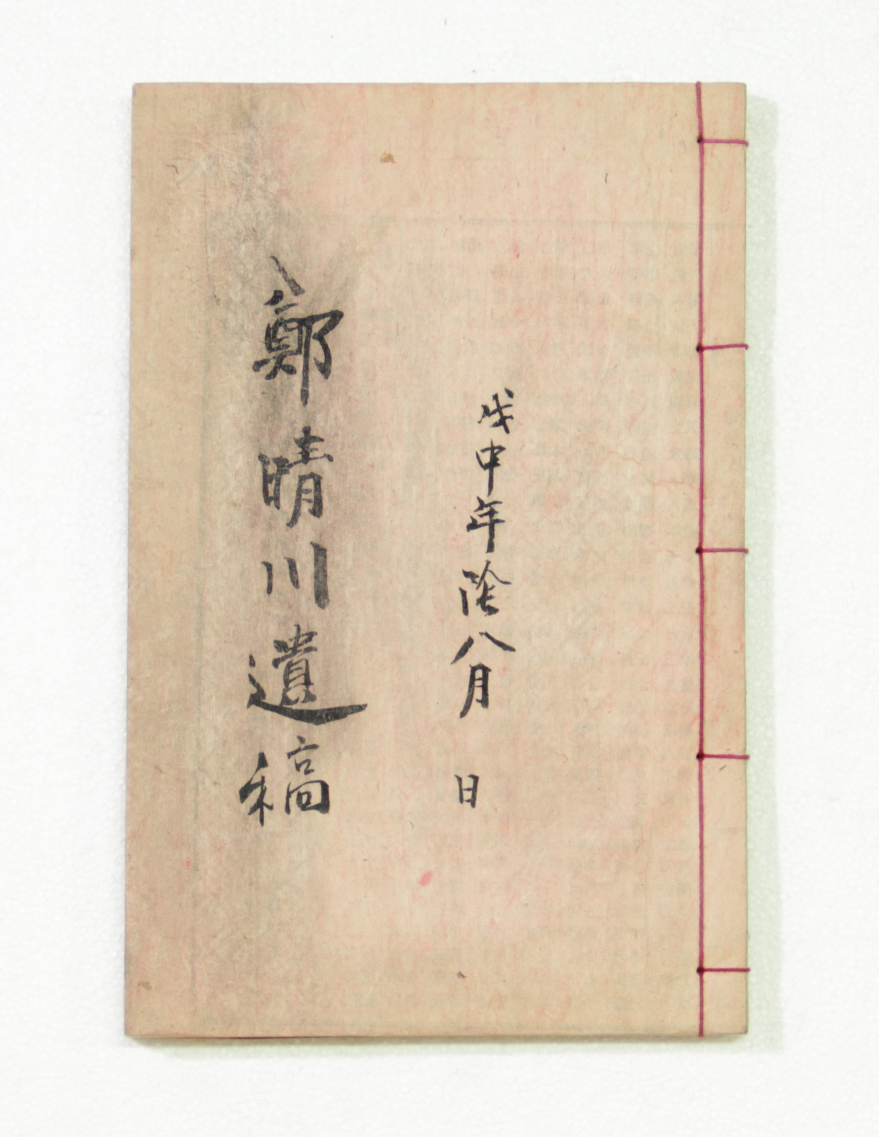 戊申年陰八月 日
鄭晴川遺稿